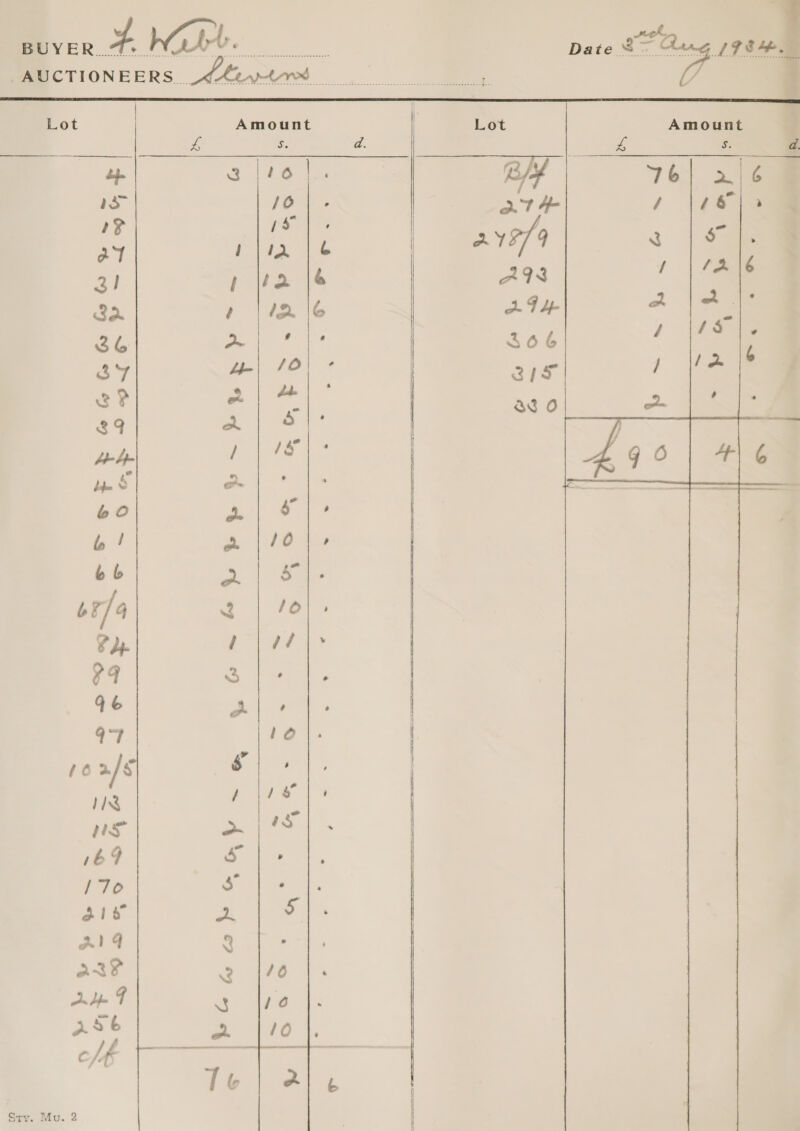 BUYER F. Webb.
Date 2nd Aug 1934.
AUCTIONEERS Stevens
Lot Amount Lot Amount
£ s. d. £ s. d.
4 3 10 . B/F 76 2 6
15 10 . 274 1 15 .
18 15 . 278/9 3 5 .
27 1 12 6 293 1 12 6
31 1 12 6 294 2 2 .
32 1 12 6 306 1 15 .
36 2 . . 315 1 12 6
37 4 10 . 330 2 . .
38 2 4 .
39 2 5 . £90 4 6
44 1 15 .
45 2 . .
60 2 5 .
61 2 10 .
66 2 5 .
68/9 3 10 .
84 1 11 .
89 3 . .
96 2 . .
97 10 .
102/5 5 . .
113 1 15 .
115 2 15 .
169 5 . .
170 5 . .
215 2 5 .
219 3 . .
238 3 10 .
249 3 10 .
256 2 10 .
c/f 76 2 6
Sty. Mu. 2